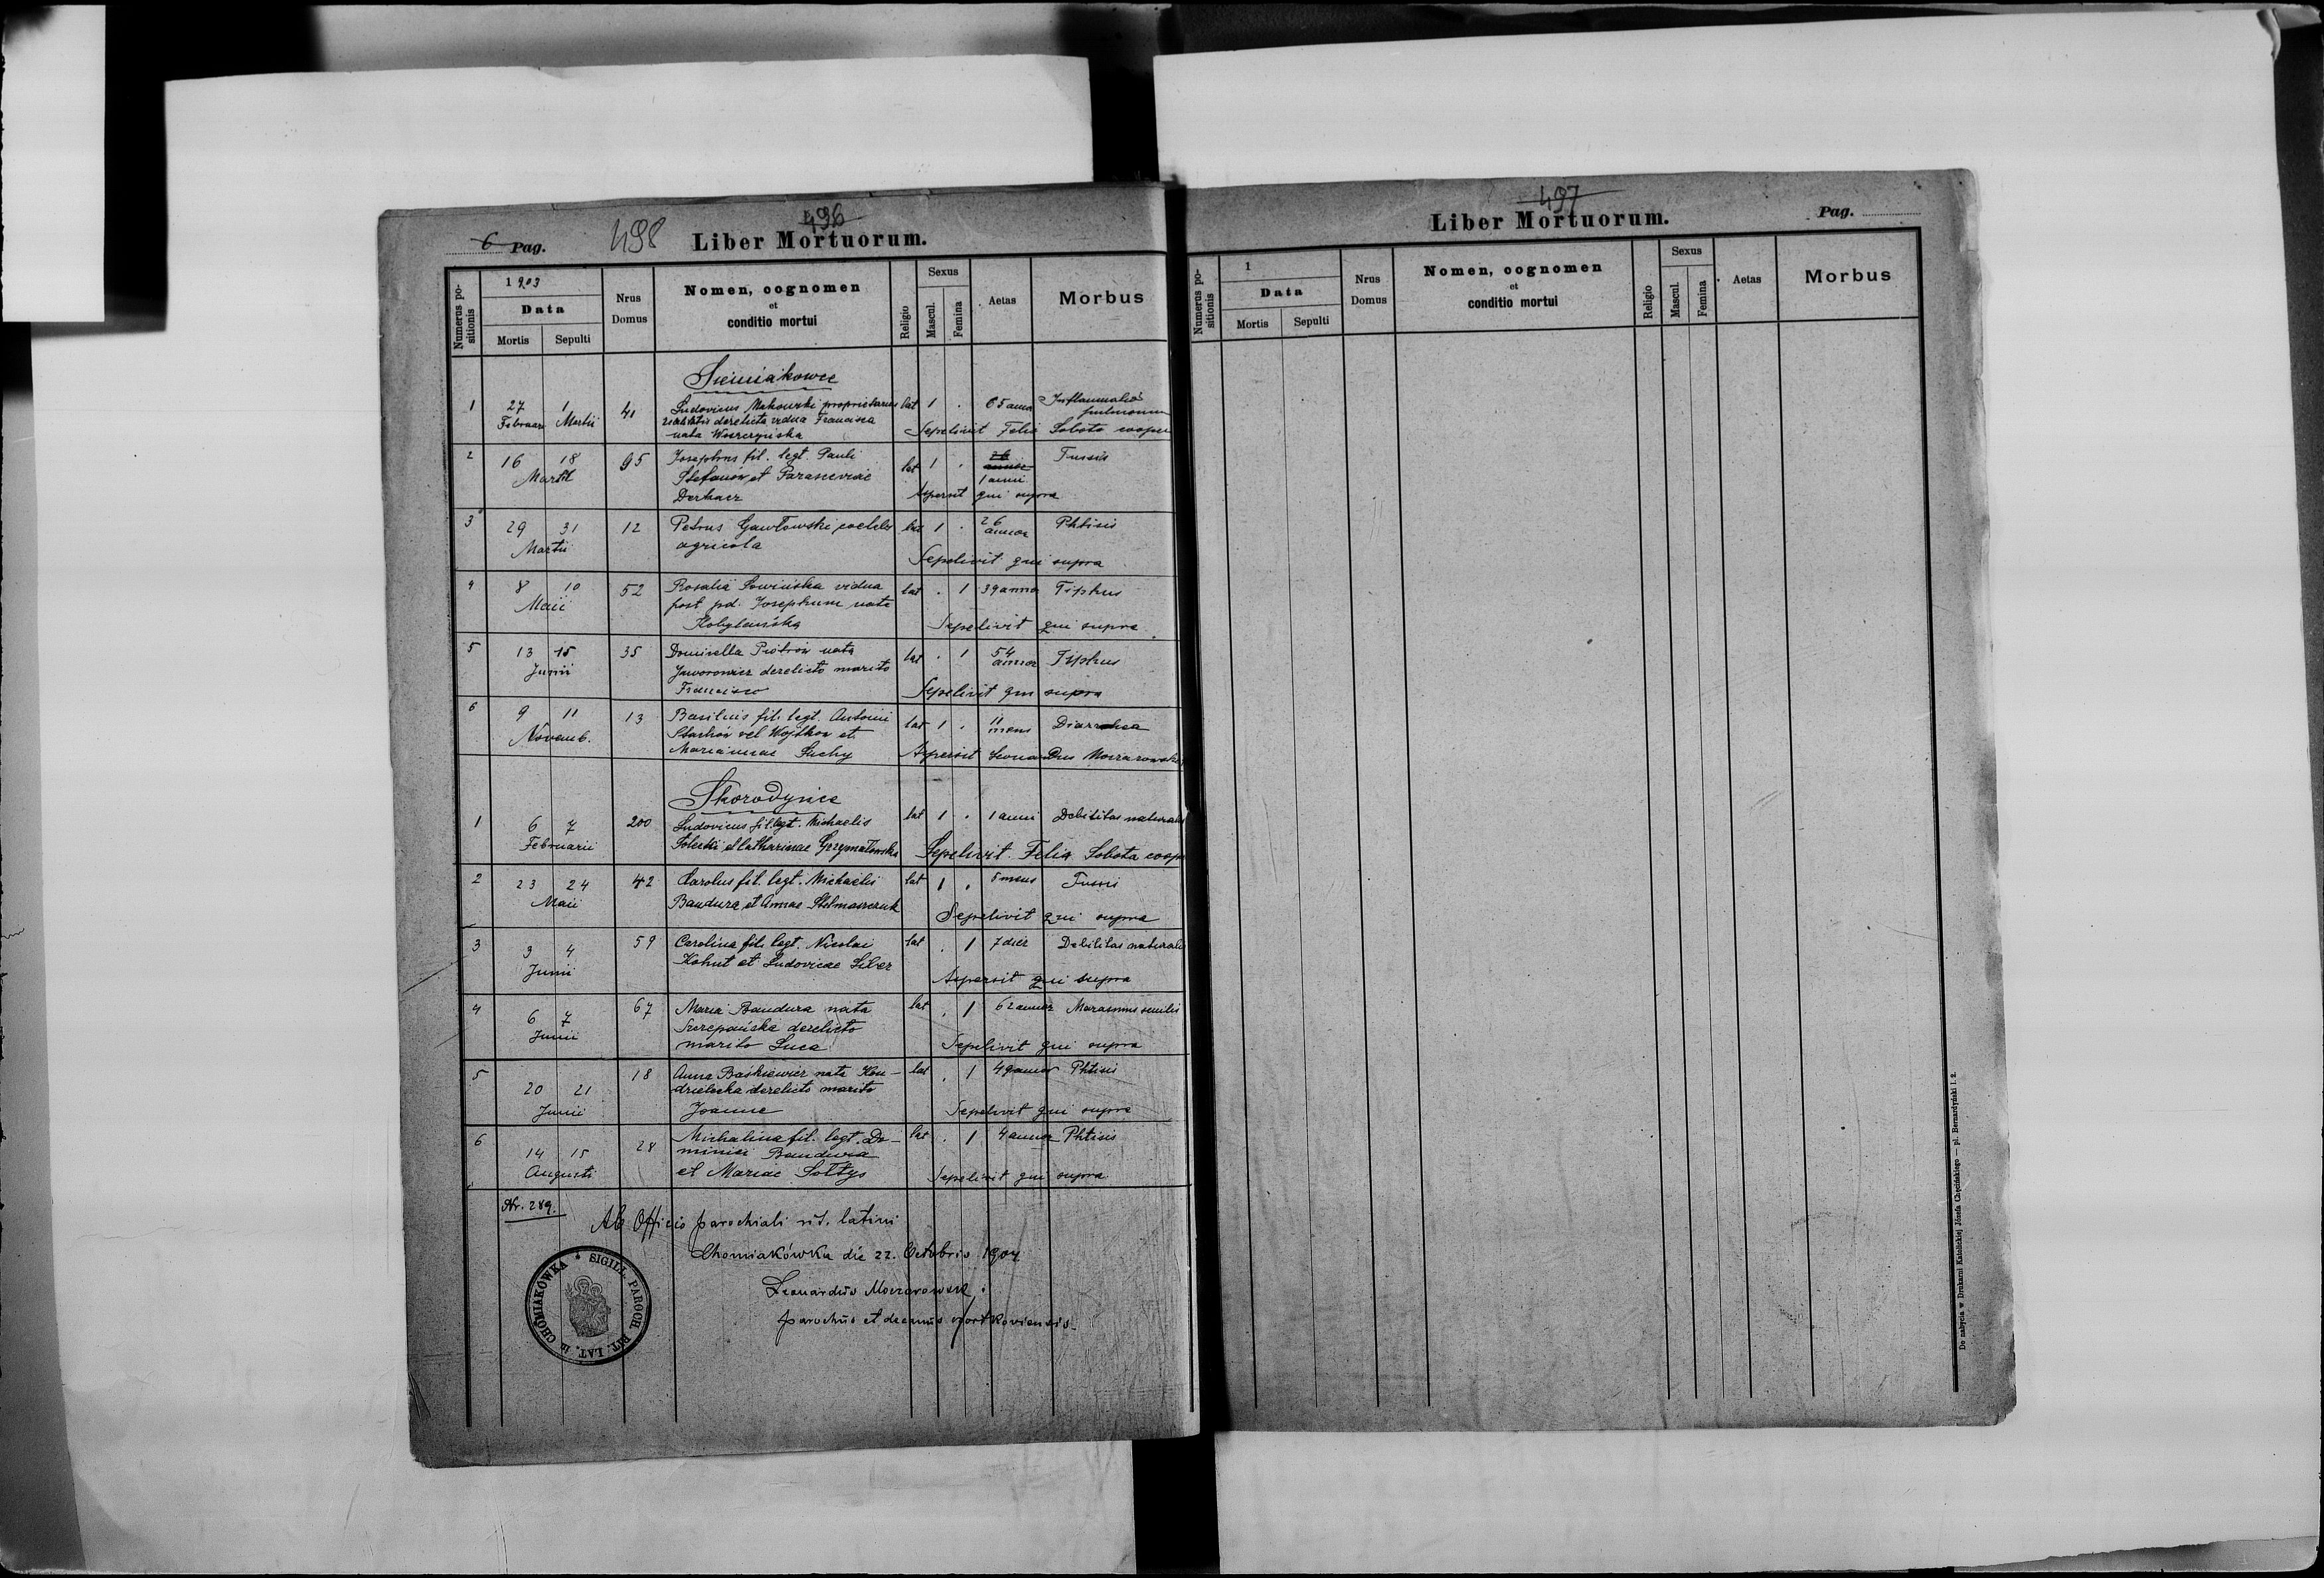 6 Pag. 498 496
Liber Mortuorum.
Numerus positionis
1903
Data
Mortis Sepulti
Nrus Domus
Nomen, cognomen
et
conditio mortui
Religio
Sexus
Mascul. Femina
Aetas
Morbus
Siemiakowce
1 27 1 41 Ludovicus Makowski proprietarius lat 1 . 65 annor Inflammatio
Februari Martii realitatis derelicta vidua Francisca pulmonum
nata Sepelivit Felix Sobota cooper
2 16 18 95 Josephus fil. legt. Pauli lat 1 . 26 Tussis
Martii Stefanów et Parasceviae annor
1 anni
Derkacz Aspersit qui supra
3 29 31 12 Petrus Gawłowski coelebs lat 1 . 26 Phtisis
Martii agricola annor
Sepelivit qui supra
4 8 10 52 Rosalia Sowińska vidua lat . 1 39 annor Tiphus
Maii post pd. Josephum nata
Kobylańska Sepelivit qui supra
5 13 15 35 Domicella Piotrów nata lat . 1 54 Tiphus
Junii Jaworowicz derelicto marito annor
Francisco Sepelivit qui supra
6 9 11 13 Basilius fil. legt. Antonii lat 1 . 11 Diarrohea
Novemb. Stachów vel Wojtków et mens
Mariannae Suchy Aspersit Leonardus Moszarowski
Skorodyńce
1 6 7 200 Ludovicus fil. legt. Michaelis lat 1 . 1 anni Debilitas naturalis
Februarii Solecki et Catharinae Grzymałowska Sepelivit Felix Sobota coop
2 23 24 42 Carolus fil. legt. Michaelis lat 1 . 5 mens Tussis
Maii Bandura et Annae Stelmaszczuk
Sepelivit qui supra
3 3 4 59 Carolina fil. legt. Nicolai lat . 1 7 dier Debilitas naturalis
Junii Kohut et Ludovicae Siber
Aspersit qui supra
4 6 7 67 Maria Bandura nata lat . 1 62 annor Marasmus senilis
Junii Szczepańska derelicto
marito Luca Sepelivit qui supra
5 20 21 18 Anna Baśkiewicz nata Kon- lat . 1 49 annor Phtisis
Junii dzielecka derelicto marito
Joanne Sepelivit qui supra
6 14 15 28 Michalina fil. legt. Do- lat . 1 4 annor Phtisis
Augusti minici Bandura
et Mariae Sołtys Sepelivit qui supra
Nr. 289.
Ab Officio parochiali rit. latini
Chomiakówka die 22. Octobris 1904
Leonardus Moszarowski
parochus et decanus czortkoviensis
SIGILL. PAROCH. RIT. LAT. in CHOMIAKÓWKA
497
Liber Mortuorum.
Pag.
Numerus positionis
1
Data
Mortis Sepulti
Nrus Domus
Nomen, cognomen
et
conditio mortui
Religio
Sexus
Mascul. Femina
Aetas
Morbus
De nabycia w Drukarni Katolickiej Józefa Chęcińskiego — pl. Bernardyński l. 2.